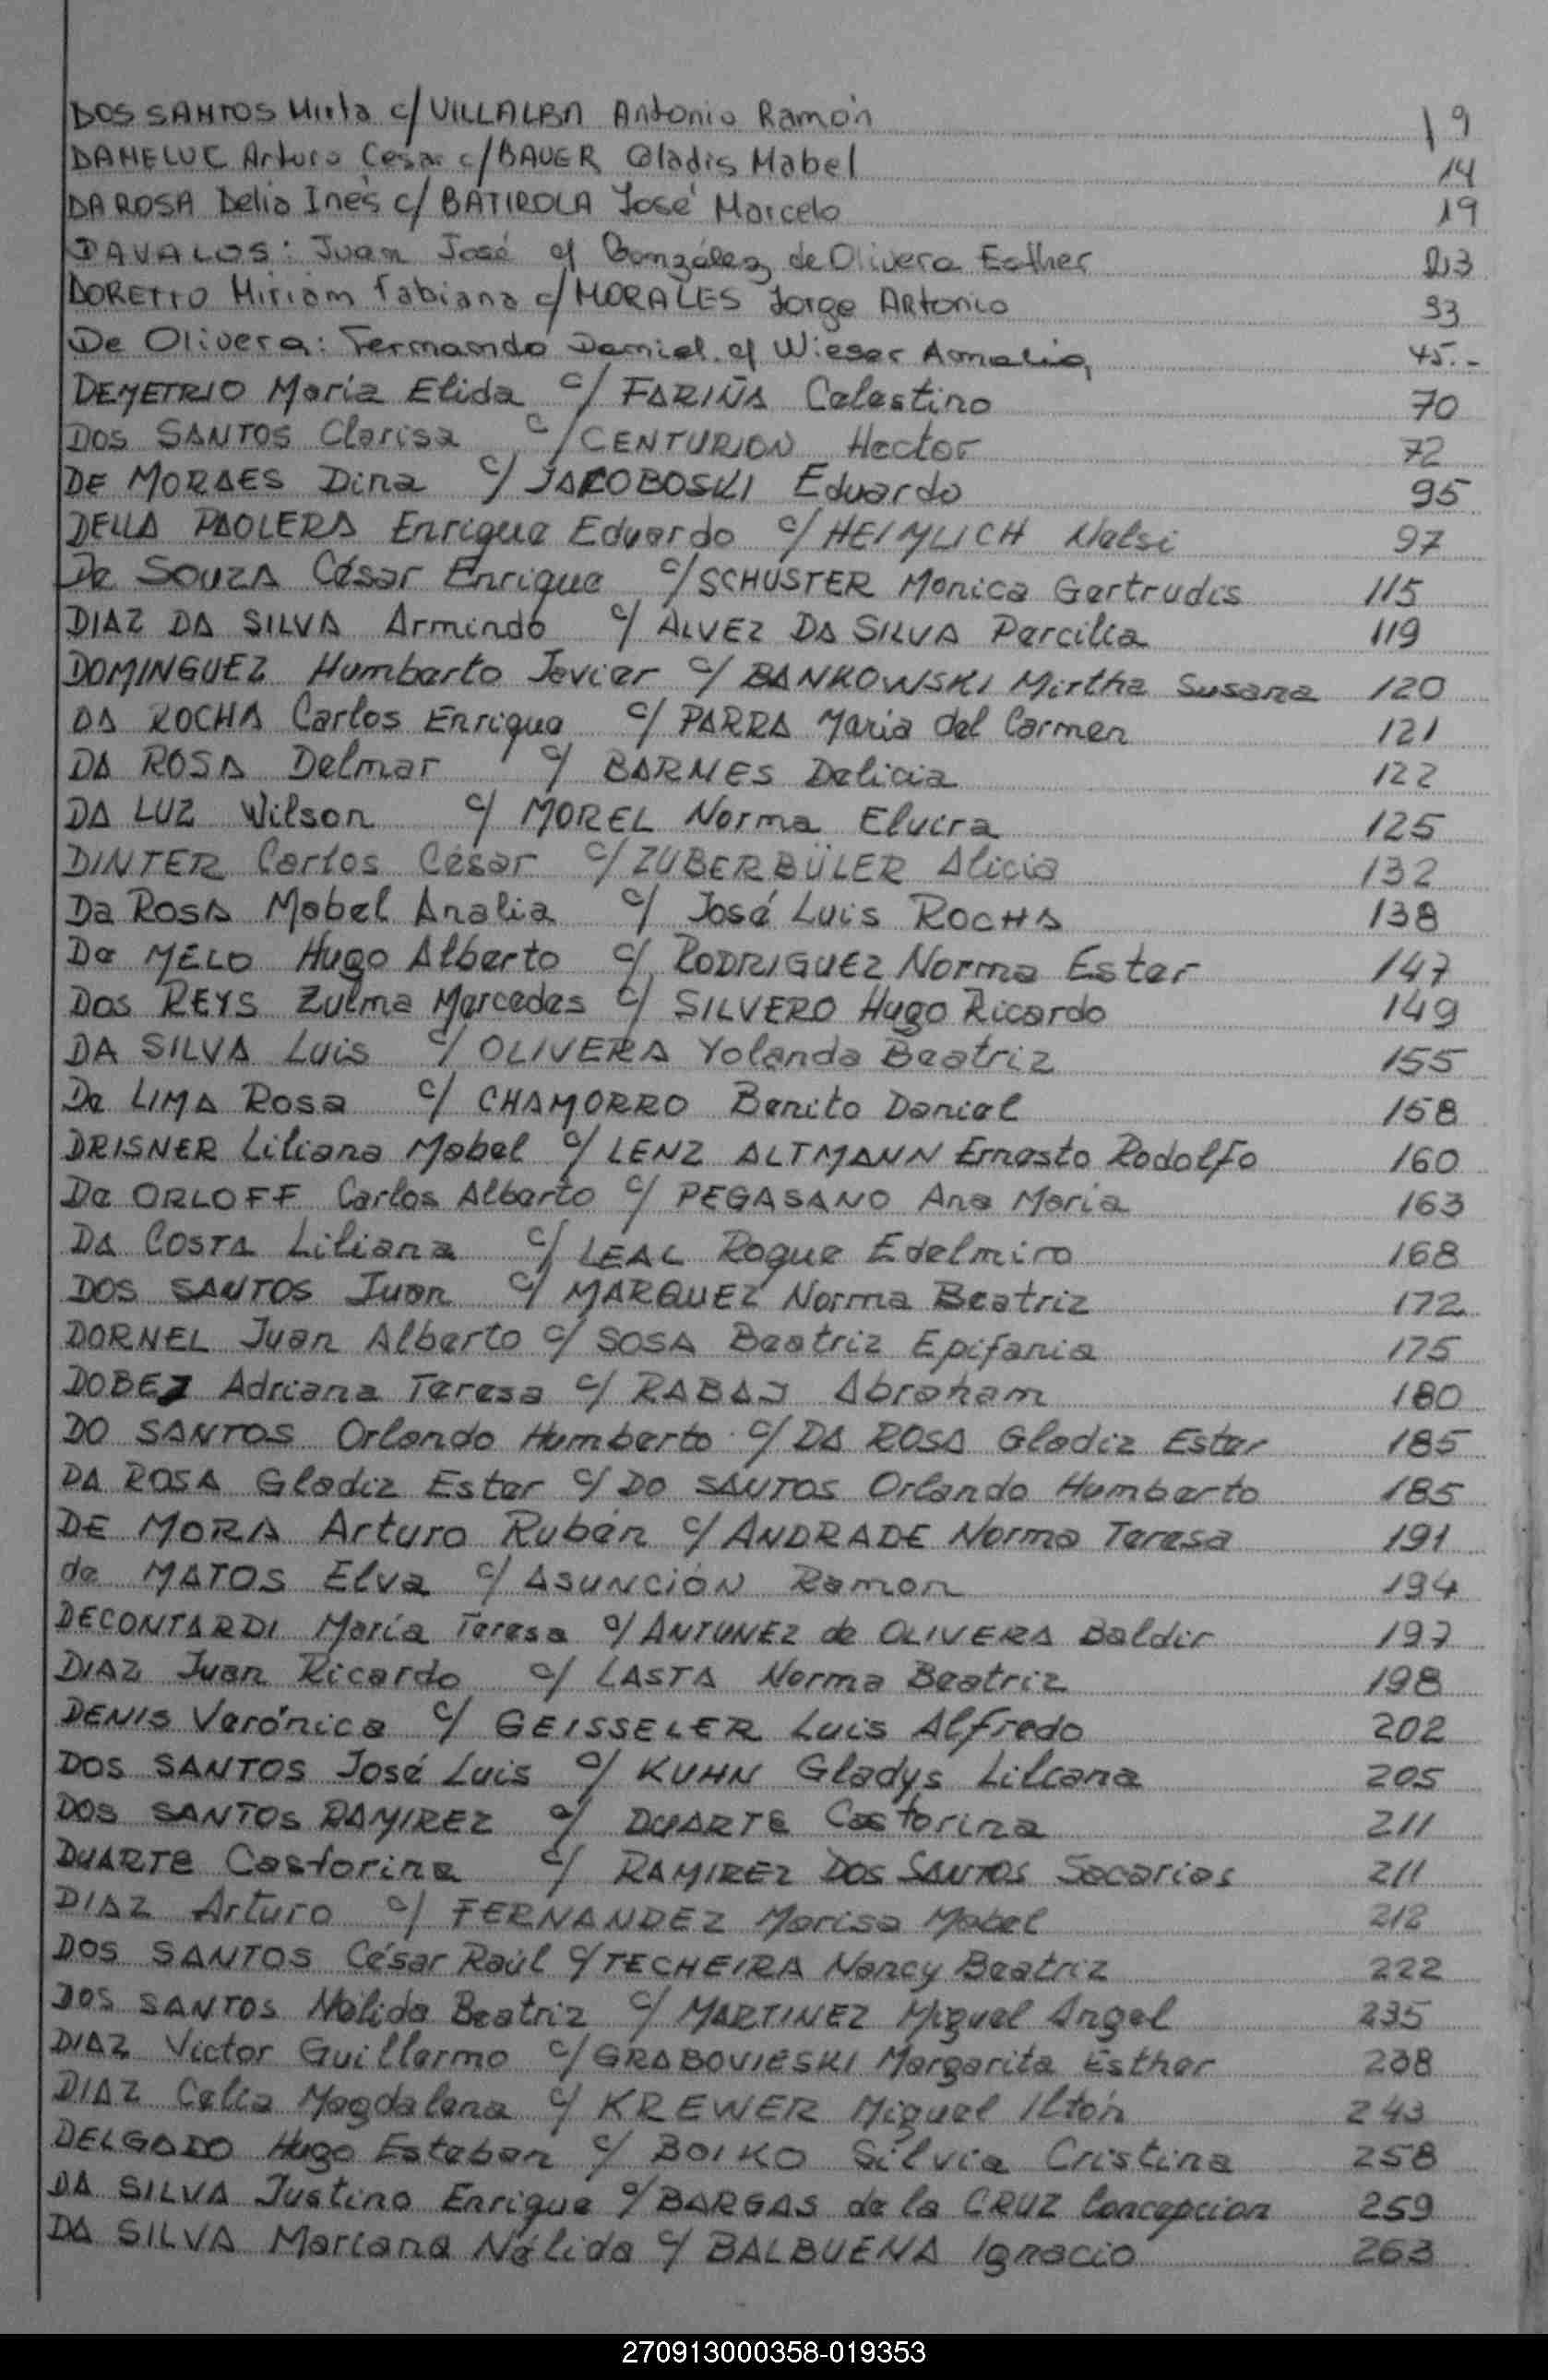 DOS SANTOS Mirta c/ VILLALBA Antonio Ramón 19
DAMELUC Arturo Cesar c/ BAUER Gladis Mabel 14
DA ROSA Delia Inés c/ BATIROLA José Marcelo 19
DAVALOS: Juan José c/ González de Olivera Esther 23
DORETTO Miriam Fabiana c/ MORALES Jorge Antonio 33
De Olivera: Fernando Daniel c/ Wieser Amalia 45.-
DEMETRIO María Elida c/ FARIÑA Celestino 70
DOS SANTOS Clarisa c/ CENTURION Hector 72
DE MORAES Dina c/ JACOBOSKI Eduardo 95
DELLA PAOLERA Enrique Eduardo c/ HEIMLICH Nelsi 97
De SOUZA César Enrique c/ SCHUSTER Monica Gertrudis 115
DIAZ DA SILVA Armindo c/ ALVEZ DA SILVA Percilia 119
DOMINGUEZ Humberto Javier c/ BANKOWSKI Mirtha Susana 120
DA ROCHA Carlos Enrique c/ PARRA Maria del Carmen 121
DA ROSA Delmar c/ BARNES Delicia 122
DA LUZ Wilson c/ MOREL Norma Elvira 125
DINTER Carlos César c/ ZUBERBÜLER Alicia 132
Da ROSA Mabel Analia c/ José Luis ROCHA 138
De MELO Hugo Alberto c/ RODRIGUEZ Norma Ester 147
Dos REYS Zulma Mercedes c/ SILVERO Hugo Ricardo 149
DA SILVA Luis c/ OLIVERA Yolanda Beatriz 155
De LIMA Rosa c/ CHAMORRO Benito Daniel 158
DRISNER Liliana Mabel c/ LENZ ALTMANN Ernesto Rodolfo 160
De ORLOFF Carlos Alberto c/ PEGASANO Ana Maria 163
DA COSTA Liliana c/ LEAL Roque Edelmiro 168
DOS SANTOS Juan c/ MARQUEZ Norma Beatriz 172
DORNEL Juan Alberto c/ SOSA Beatriz Epifania 175
DOBEJ Adriana Teresa c/ RABAJ Abraham 180
DO SANTOS Orlando Humberto c/ DA ROSA Gladiz Ester 185
DA ROSA Gladiz Ester c/ DO SANTOS Orlando Humberto 185
DE MORA Arturo Rubén c/ ANDRADE Norma Teresa 191
de MATOS Elva c/ ASUNCIÓN Ramon 194
DECONTARDI María Teresa c/ ANTUNEZ de OLIVERA Baldir 197
DIAZ Juan Ricardo c/ LASTA Norma Beatriz 198
DENIS Verónica c/ GEISSELER Luis Alfredo 202
DOS SANTOS José Luis c/ KUHN Gladys Liliana 205
DOS SANTOS RAMIREZ c/ DUARTE Castorina 211
DUARTE Castorina c/ RAMIREZ DOS SANTOS Socarias 211
DIAZ Arturo c/ FERNANDEZ Marisa Mabel 212
DOS SANTOS César Raúl c/ TECHEIRA Nancy Beatriz 222
DOS SANTOS Nélida Beatriz c/ MARTINEZ Miguel Angel 235
DIAZ Victor Guillermo c/ GRABOVIESKI Margarita Esther 238
DIAZ Celia Magdalena c/ KREWER Miguel Iltón 243
DELGADO Hugo Esteban c/ BOIKO Silvia Cristina 258
DA SILVA Justino Enrique c/ BARGAS de la CRUZ Concepcion 259
DA SILVA Mariana Nélida c/ BALBUENA Ignacio 263
270913000358-019353